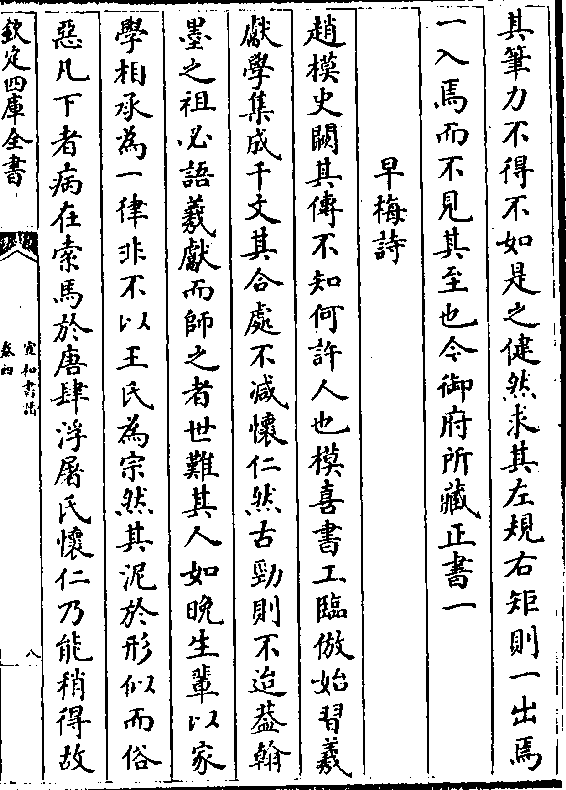 其筆力不得不如是之健然求其左規右矩則一出焉
一入焉而不見其至也今御府所藏正書一
早梅詩
趙模史闕其傳不知何許人也模喜書工臨倣始習羲
獻學集成千文其合處不減懷仁然古勁則不迨葢翰
墨之祖必語羲獻而師之者世難其人如晚生輩以家
學相承為一律非不以王氏為宗然其泥於形似而俗
惡凡下者病在索馬於唐肆浮屠氏懷仁乃能稍得故
欽定四庫全書
宣和書譜
卷四
八